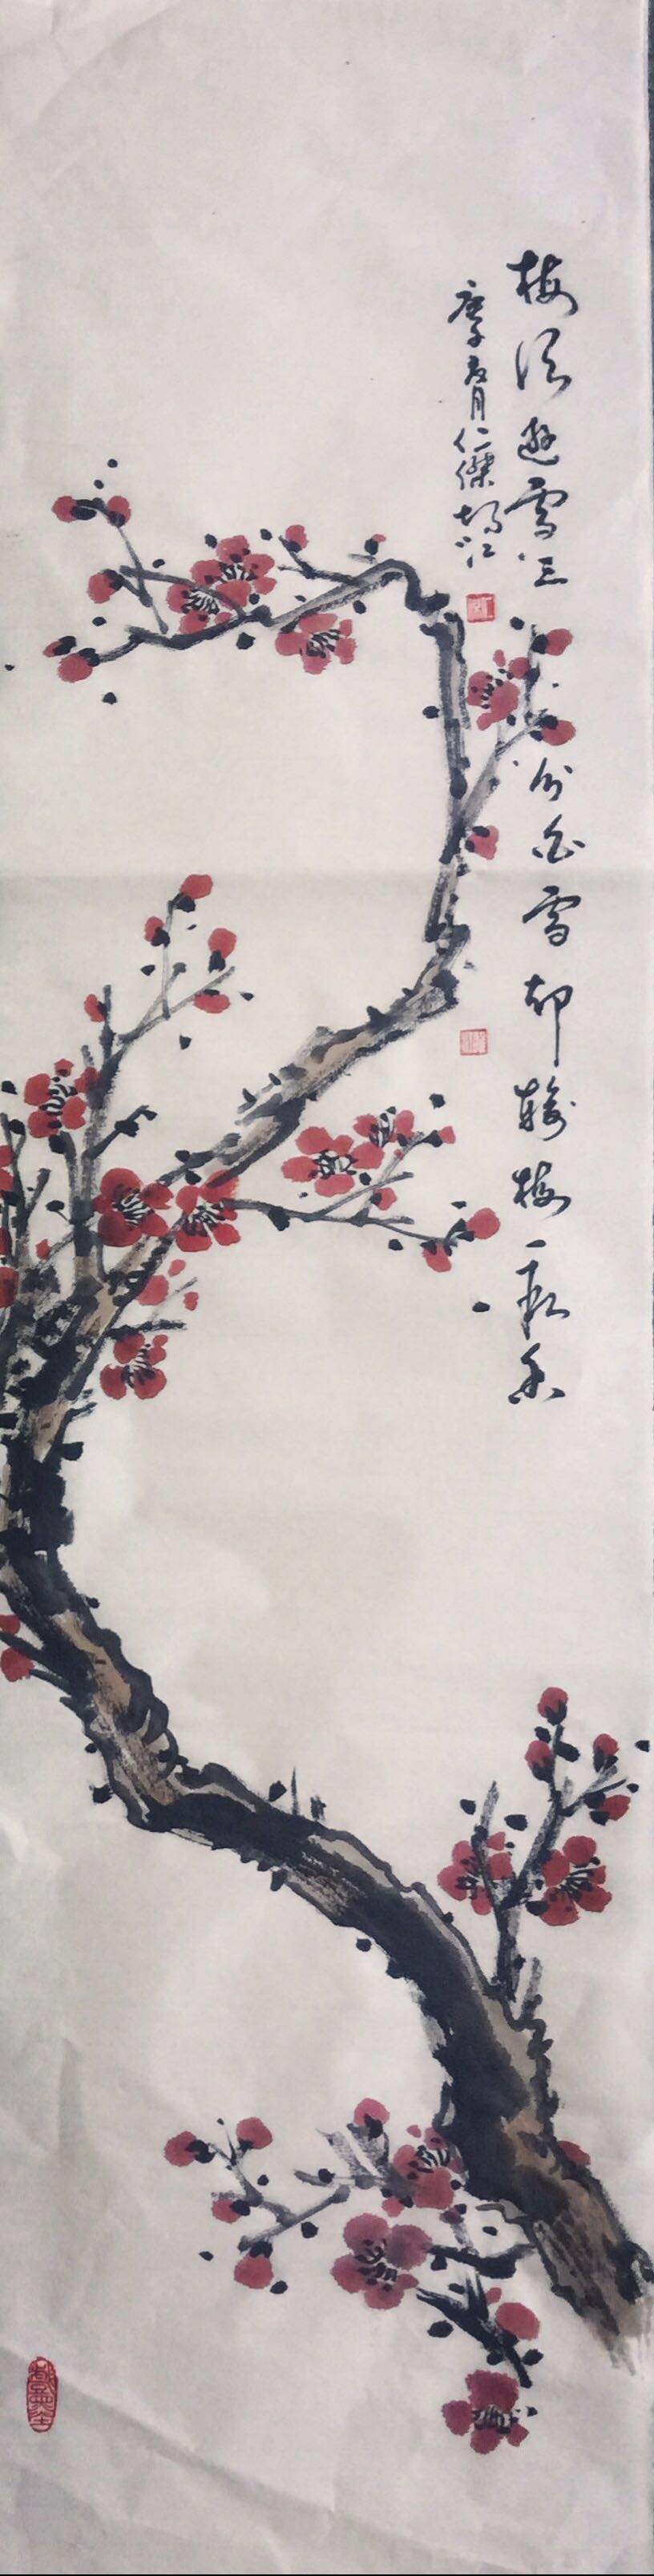 梅須遜雪三分白雪却輸梅一段香
庚子夏月仁傑